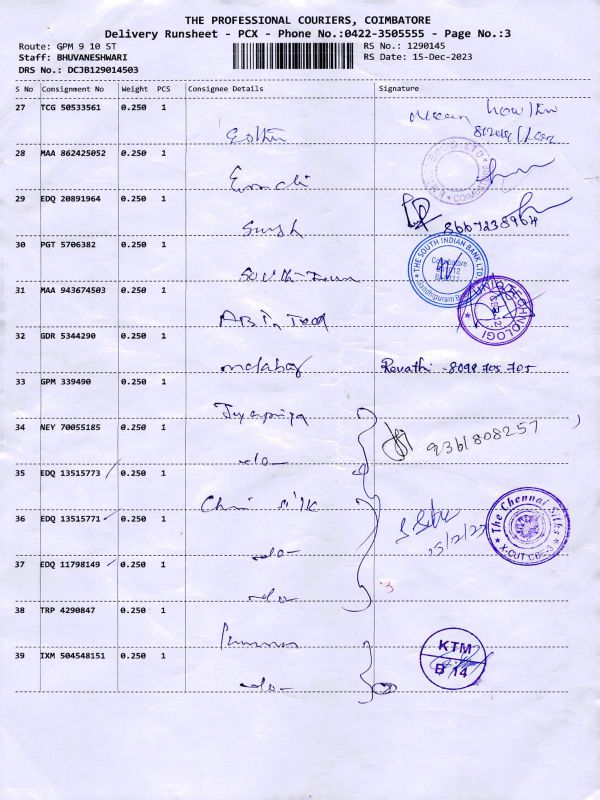 THE PROFESSIONAL COURIERS, COIMBATORE
Delivery Runsheet - PCX - Phone No.:0422-3505555 - Page No.:3
Route: GPM 9 10 ST
RS No.: 1290145
Staff: BHUVANESHWARI
RS Date: 15-Dec-2023
DRS No.: DCJB129014503
S No Consignment No Weight PCS Consignee Details Signature
27 TCG 50533561 0.250 1
28 MAA 862425052 0.250 1
29 EDQ 20891964 0.250 1
Singh
8667238964
30 PGT 5706382 0.250 1
THE SOUTH INDIAN BANK LTD.
Coimbatore
South
31 MAA 943674503 0.250 1
32 GDR 5344290 0.250 1
Revathi - 8098 705 705
33 GPM 339490 0.250 1
Jeyapriya
34 NEY 70055185 0.250 1
9361808257
-do-
35 EDQ 13515773 0.250 1
Silk
The Chennai Silks
X-CUT CBE-3
36 EDQ 13515771 0.250 1
15/12/23
-do-
37 EDQ 11798149 0.250 1
-do-
38 TRP 4290847 0.250 1
39 IXM 504548151 0.250 1
KTM
B 14
-do-